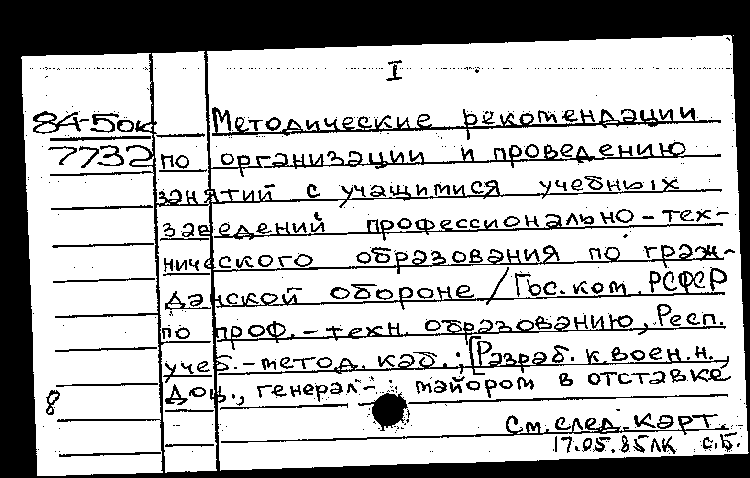 I
84-5ок Методические рекомендации
7732 по организации и проведению
занятий с учащимися учебных
заведений профессионально-тех-
нического образования по граж-
данской обороне / Гос. ком. РСФСР
по проф.-техн. образованию, Респ.
учеб.-метод. каб.; [Разраб. к.воен.н.,
доц., генерал-майором в отставке
8
См. след. карт.
17.05.85ЛК с.Б.